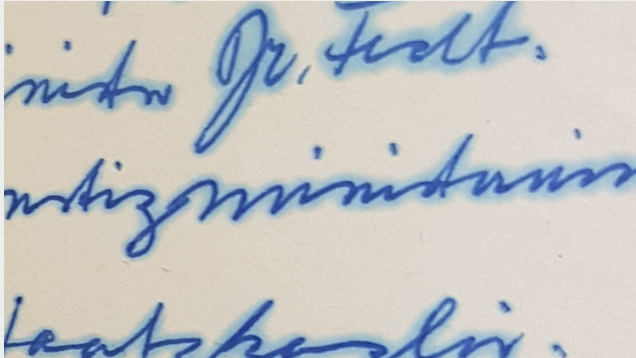 inister Dr. Fecht.
ustizministerium
taatskanzlei.